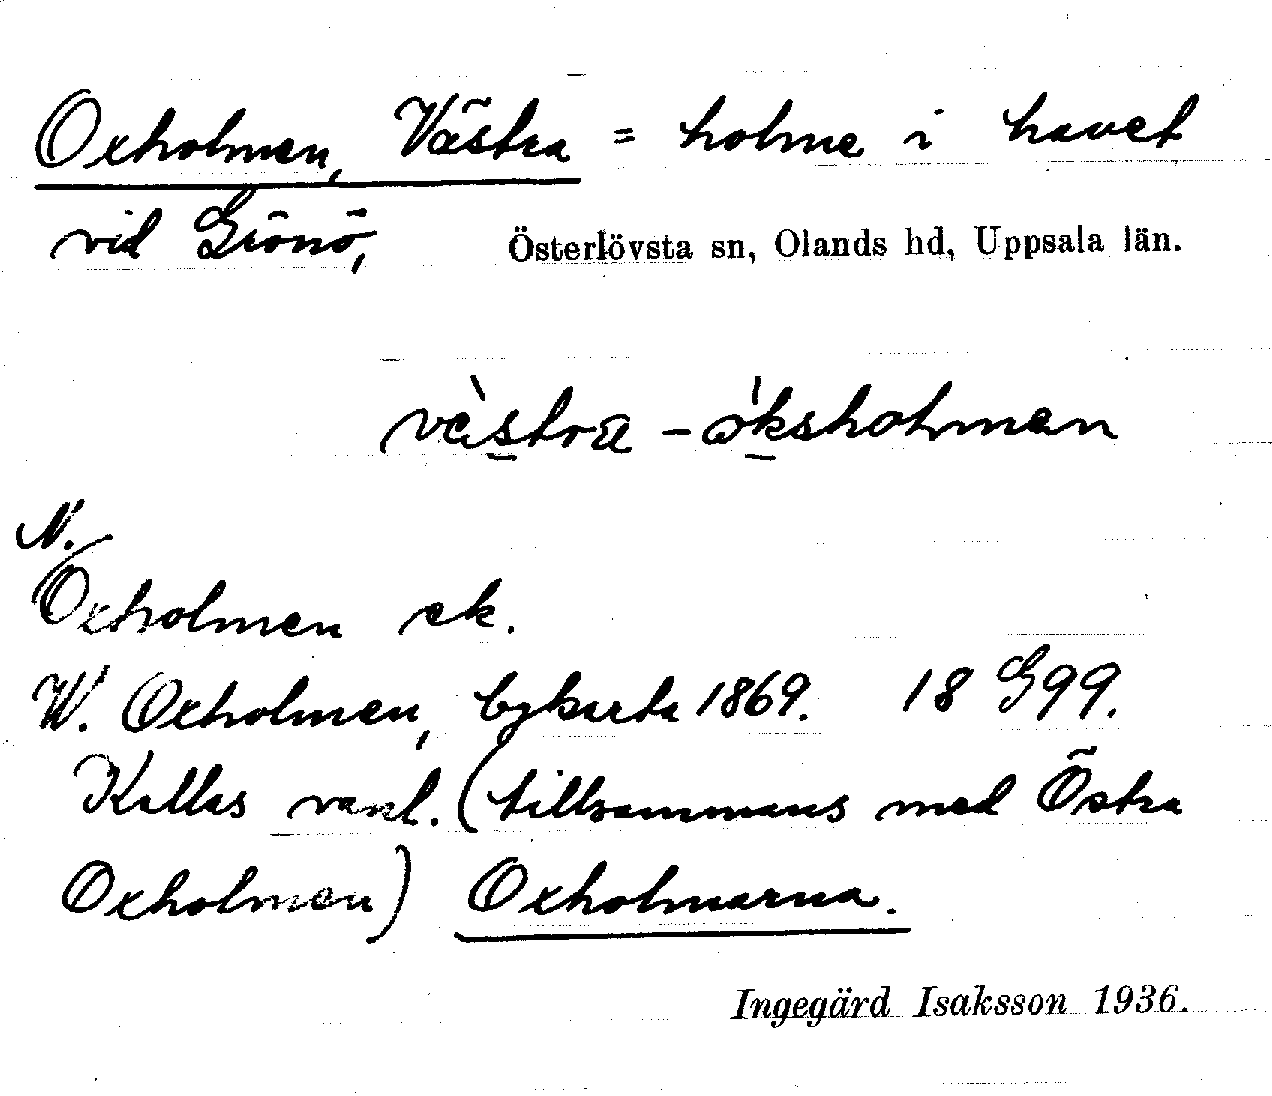 Oxholmen, Västra = holme i havet
vid Grönö, Österlövsta sn, Olands hd, Uppsala län.
vàstra - ɷ́ksholmɘn
N.
Oxholmen ek.
W. Oxholmen, bykarta 1869. 18 G99.
Kallas vanl. (tillsammans med Östra
Oxholmen) Oxholmarna.
Ingegärd Isaksson 1936.